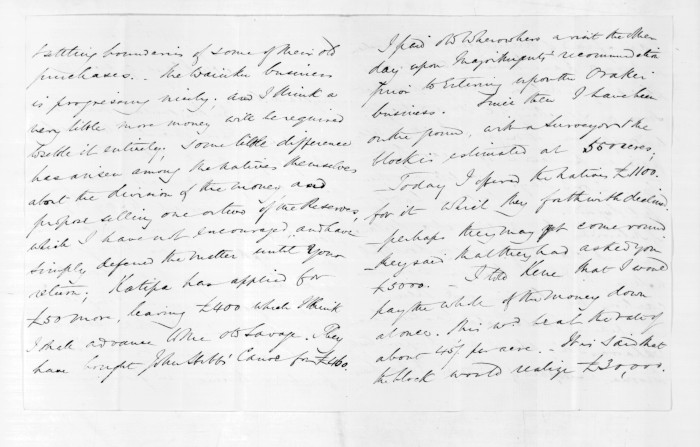 settling boundaries of some of their old
purchases. - The Waiuku business
is progressing nicely. and I think a
very little more money will be required
to settle it entirely; some little difference
has arisen among the natives themselves
about the division of the money and
propose selling one or two of the Reserves,
which I have not encouraged, and have
simply defered the matter until your
return; Katipa has applied for
£50 more, leaving £400 which I think
I shall advance the old Savage. They
have bought John Stubbs' Canoe for £160.
I paid old Wherowhero a visit the other
day upon Major Nugent's recommendation
prior to entering upon the Orakei
business. Since then I have been
on the ground, with a Surveyor & the
block is estimated at 500 acres;
- Today I offered the natives £1100.
for it which they forthwith declined.
- perhaps they may yet come round
- They said that they had asked you
£5000. - I told Kene that I would
pay the whole of the money down
at once. This wd. be at the rate of
about 45/ per acre. - It is said that
the block would realize £30,000.